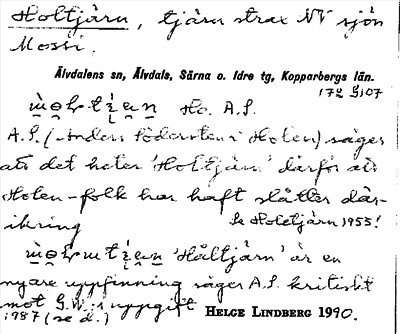 Holtjärn, tjärn strax NV sjön
Mossi.
Älvdalens sn, Älvdals, Särna o. Idre tg, Kopparbergs län.
172 G107
Ho. A.S.
A.S. (Anders Södersten i Holen) säger
att det heter 'Holtjärn' därför att
Holen-folk har haft slåtter där-
ikring
Se Holetjärn 1953!
'Håltjärn' är en
nyare uppfinning säger A.S. kritiskt
mot G.W:s uppgift
1987 (se d.)
HELGE LINDBERG 1990.